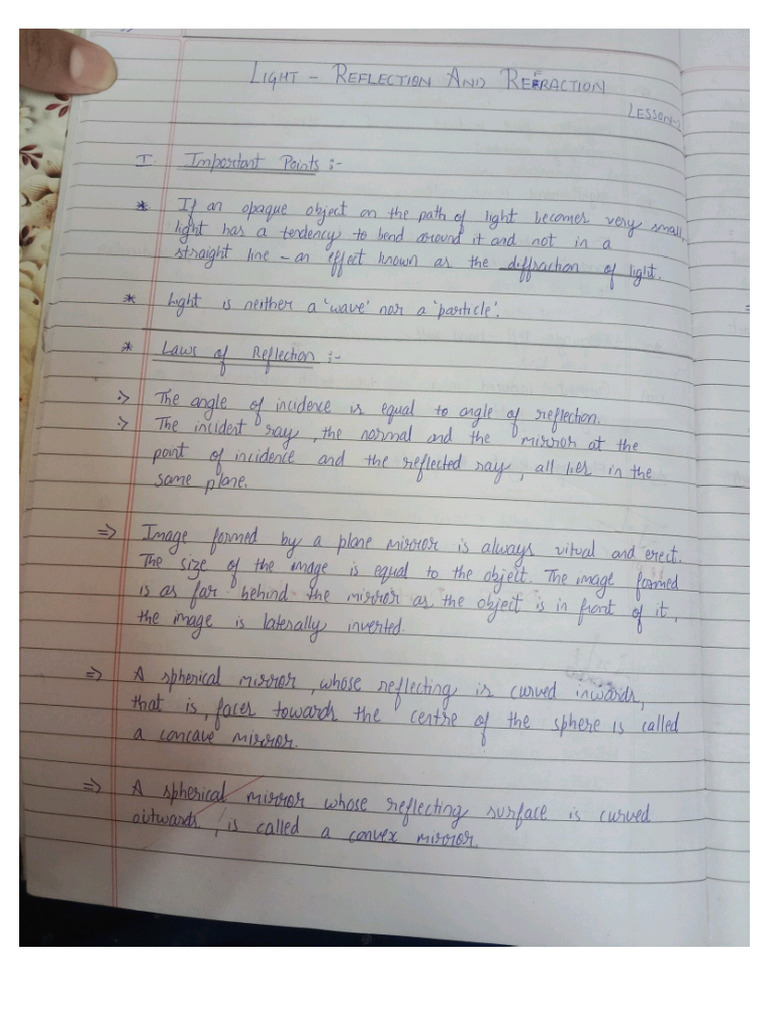 LIGHT - REFLECTION AND REFRACTION
LESSON-
I. Important Points :-
* If an opaque object on the path of light becomes very small,
light has a tendency to bend around it and not in a
straight line - an effect known as the diffraction of light.
* Light is neither a 'wave' nor a 'particle'.
* Laws of Reflection :-
The angle of incidence is equal to angle of reflection.
The incident ray, the normal and the mirror at the
point of incidence and the reflected ray, all lies in the
same plane.
=> Image formed by a plane mirror is always vitual and erect.
The size of the image is equal to the object. The image formed
is as far behind the mirror as the object is in front of it,
the image is laterally inverted.
=> A spherical mirror, whose reflecting is curved inwards,
that is, faces towards the centre of the sphere is called
a concave mirror.
=> A spherical mirror whose reflecting surface is curved
outwards, is called a convex mirror.